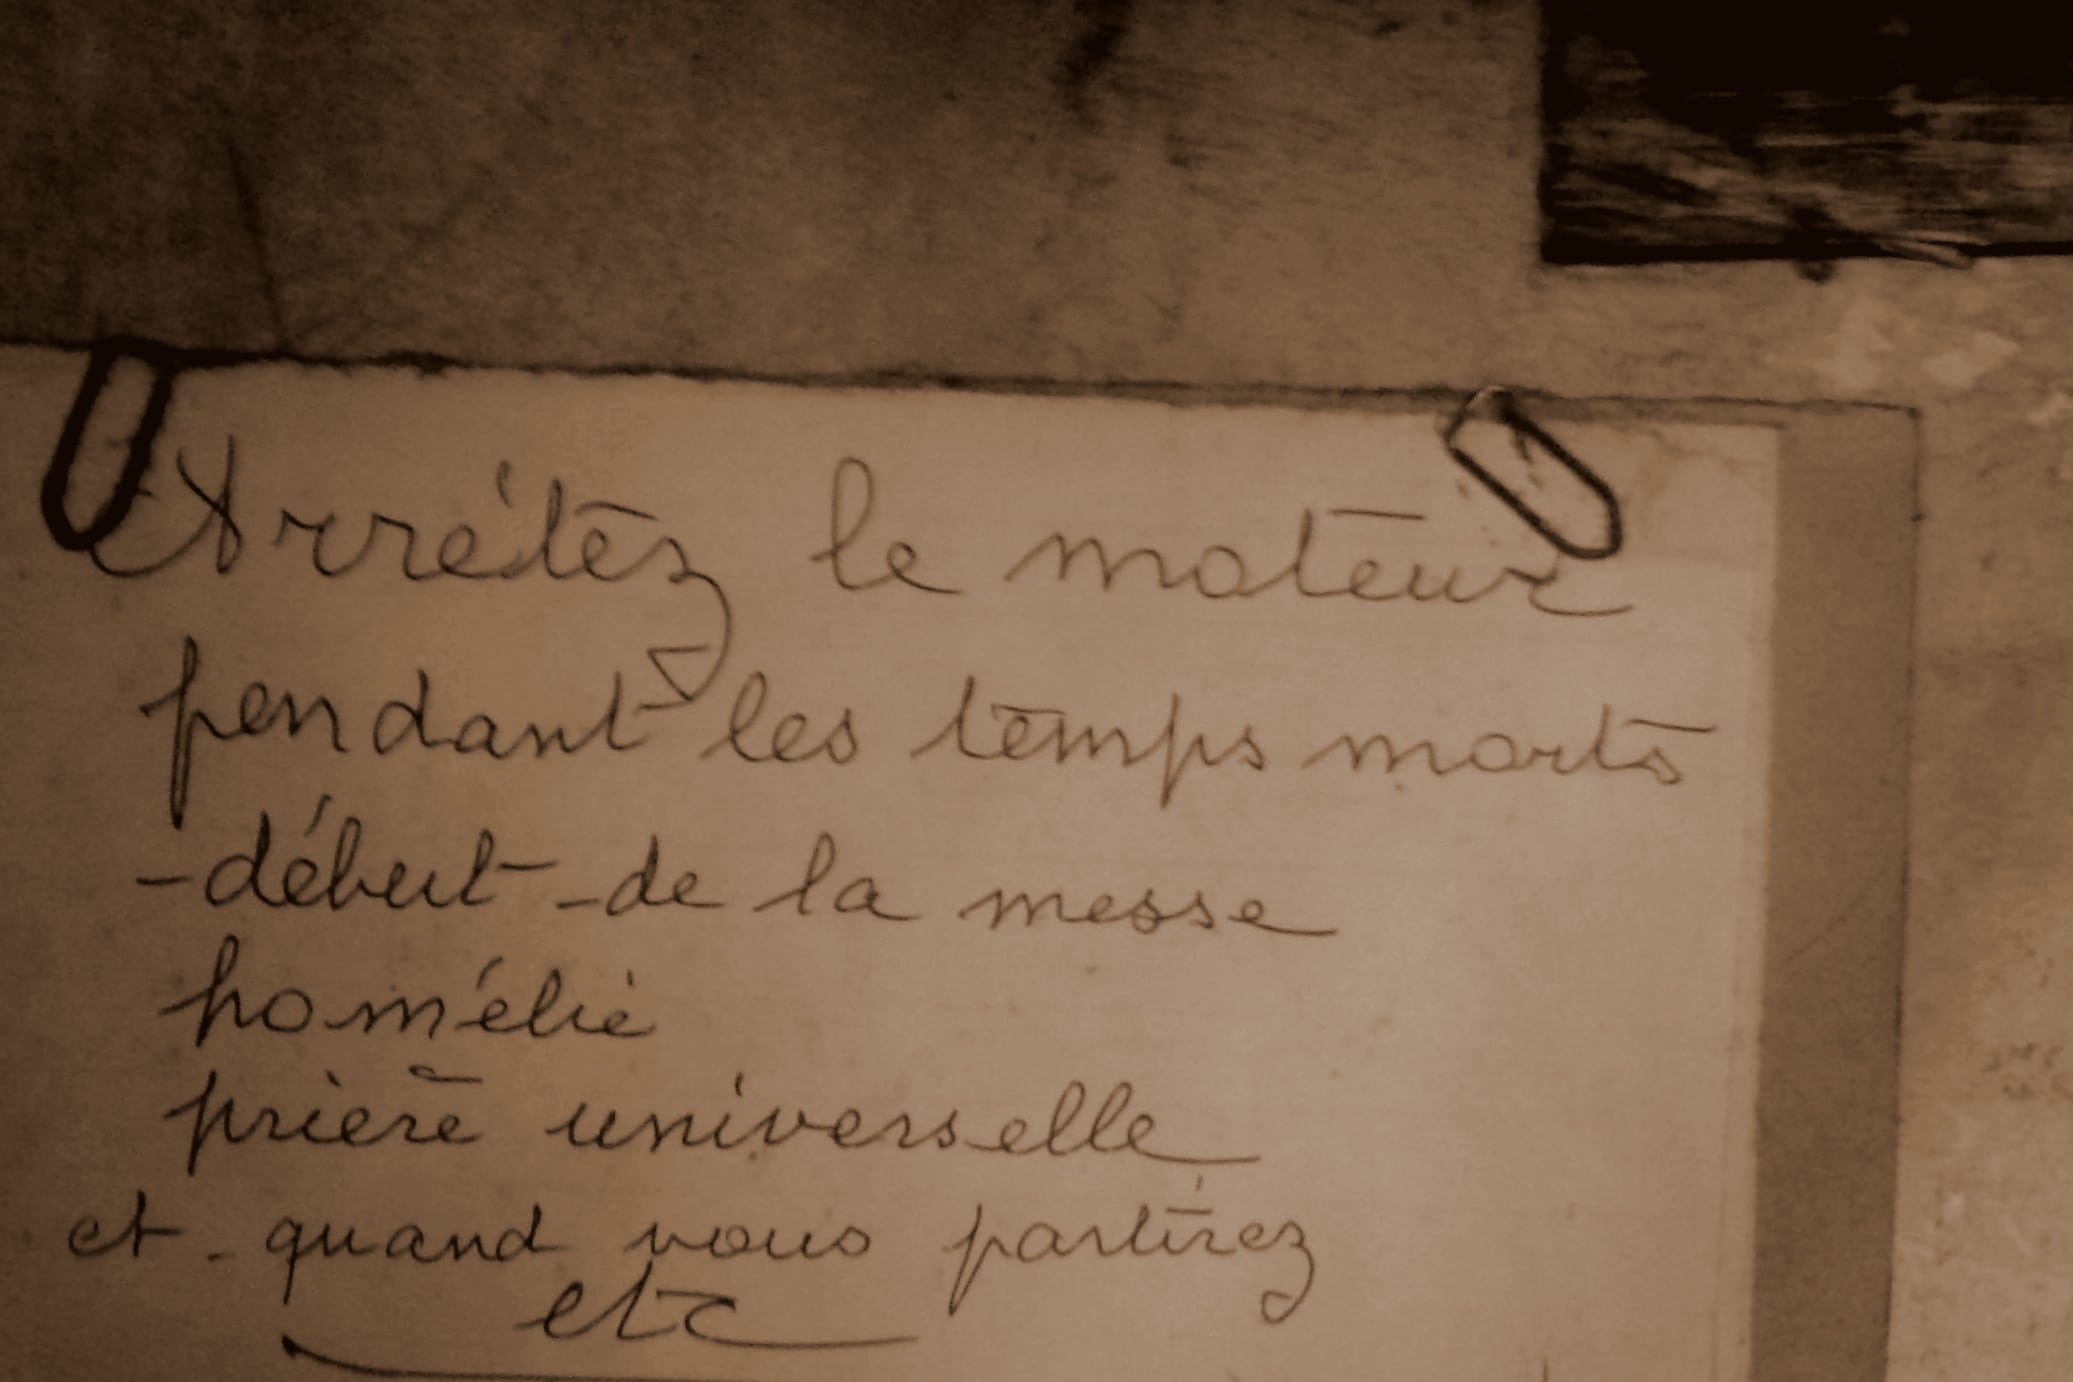 Arrétez le moteur
pendant les temps morts
- début - de la messe
homélie
prière universelle
et - quand vous partirez
etc